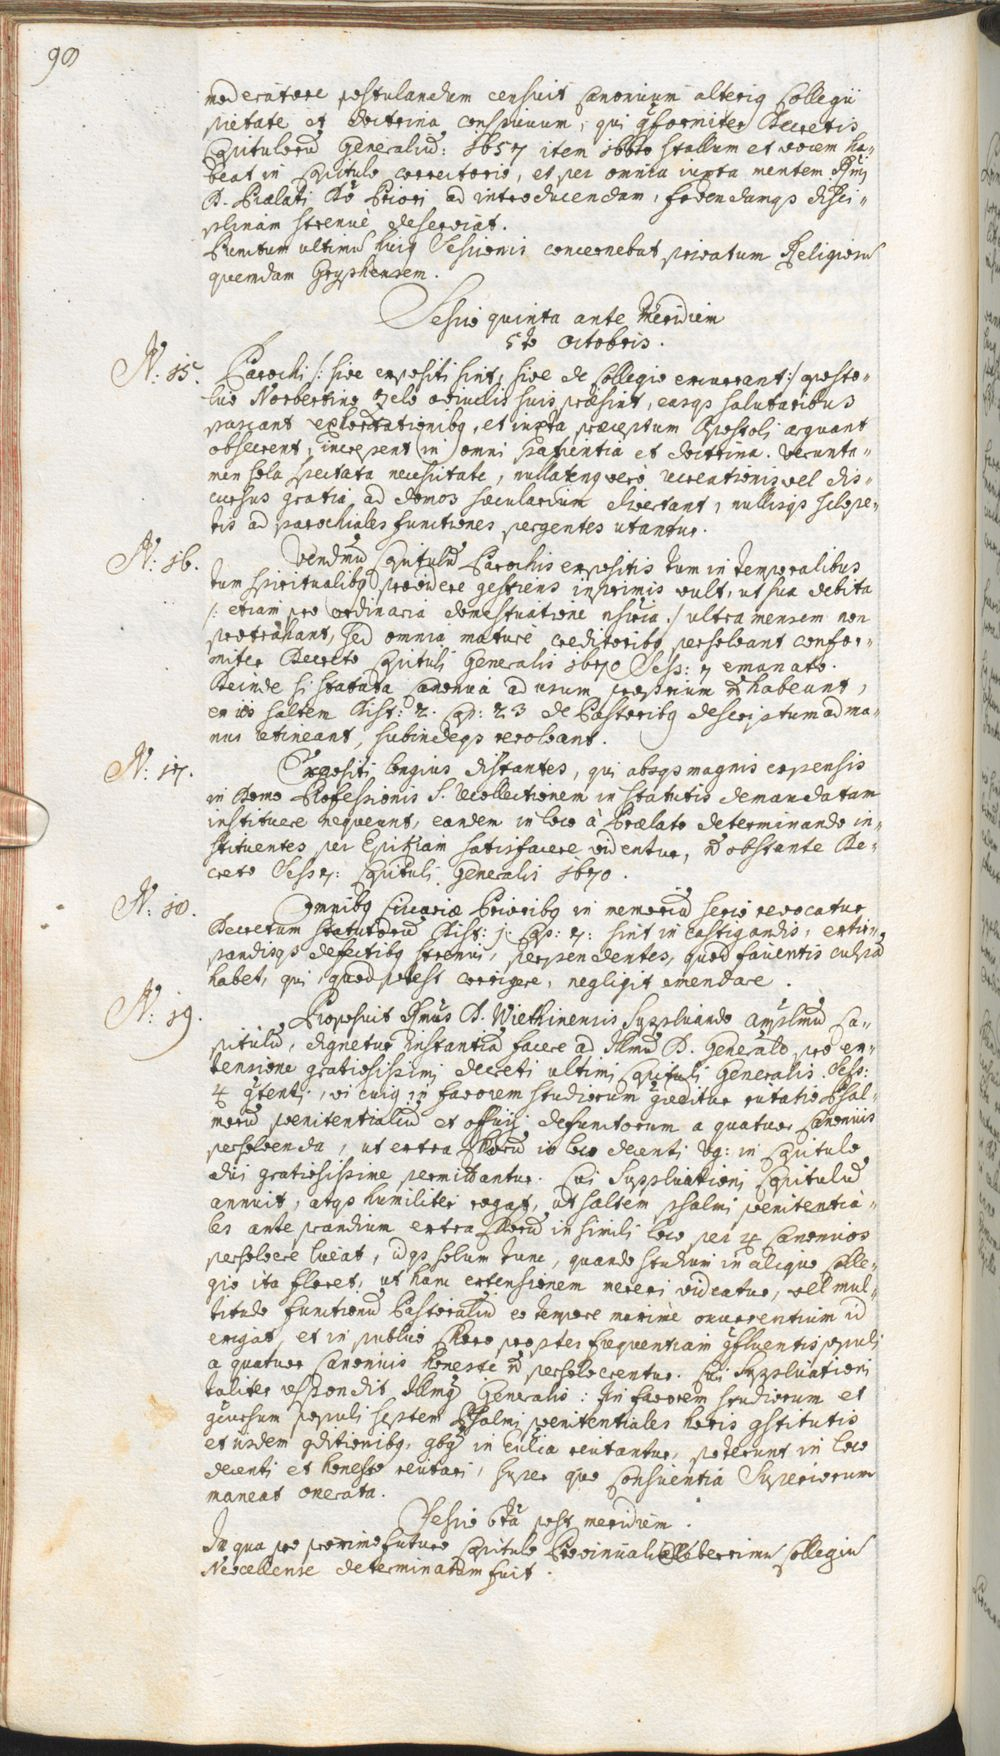 90
moderatore postulandum censuit Canonicum alteriq Collegii
pietate et doctrina conspicuum, qui qformiter Decretis
Capitulorũ Generaliũ: 1657 item 1660 stallum et vocem ha-
beat in Capitulo correctorio, et per omnia iuxta mentem Rmi
D. Prælati Dõ Priori ad introducendam, fovendamqs disci-
plinam strenuè deserviat.
Punctum ultimũ huiq Sessionis concernebat privatum Religiosũ
quemdam Gryphensem.
Sessio quinta ante Meridiem
5tâ Octobris.
N: 15. Parochi /: sive expositi sint, sive de Collegio excurrant :/ aposto-
lico Norbertino zelo oviculis suis præsint, easqs salutaribus
pascant exhortationibq, et iuxta præceptum Apostoli arguant
obsecrent, increpent in omni patientia et doctrina. Verunta-
men sola spectata necessitate, nullatenq verò recreationis vel dis-
cursus gratiâ ad domos sæcularium divertant, nullisqs sclope-
tis ad parochiales functiones pergentes utantur.
N: 16. Vendmũ Capitulũ Parochis expositis tum in temporalibus
tum spiritualibq providere gestiens inprimis vult, ut sua debita
/: etiam pro ordinaria domestuatione /: ultra mensem non
protrahant, sed omnia mature creditoribq persolvant confor-
miter Decreto Capituli Generalis 1670 Sess: 7 emanato.
Deinde si statuta Canonica ad usum proprium ñ habeant,
ex iis saltem Dist: 2. Cap: 23 de Pastoribq descriptum ad ma-
nus retineant, subindeqs revolvant.
N: 17. Expositi longius distantes, qui absqs magnis expensis
in Domo Professionis S. Recollectionem in statutis demandatam
instituere nequeunt, eandem in loco à Prælato determinando in-
stituentes per Epikiam satisfacere videntur, ñ obstante De-
creto Sess 7: Capituli Generalis 1670.
N: 18. Omnibq Circariæ Prioribq in memoriã serio revocatur
Decretum statutorũ Dist: j. Cap: 7: sint in castigandis, extir-
pandisqs defectibq strenui, perpendentes, quod faventis culpã
habet, qui, quod potest corrigere, negligit emendare.
N: 19. Proposuit Rmus D. Wiethinensis supplicando amplmũ Ca-
pitulũ, dignetur Instantiã facere ad Illmũ D. Generalẽ pro ex-
tensione gratiosissimi decreti ultimi Capituli Generalis Sess:
4 qtenti, vi cuiq in favorem studiorum qceditur rutatio Psal-
morũ pœnitentialiũ et officii defunctorum a quatuor Canonicis
persolvenda, ut extra Chorũ in loco decenti vg: in Capitulo
dici gratiosissime permittantur. Cui Supplicationi Capitulũ
annuit, atqs humiliter rogat, ut saltem psalmi pœnitentia-
les ante prandium extra Chorũ in simili loco per 4 Canonicos
persolvere liceat, idqs solum tunc, quando studium in aliquo Colle-
gio ita floret, ut hanc extensionem mereri videatur, vel mul-
titudo functionũ Pastoraliũ eo tempore maximè occurrentium id
exigat, et in publico Choro propter frequentiam qfluentis populi
a quatuor Canonicis honeste ñ persolverentur. Cui Supplicationi
taliter respondit Illmq Generalis: In favorem studiorum et
qcursum populi septem Psalmi pœnitentiales horis qstitutis
et iisdem qditionibq, qbq in Eccĩa recitantur, poterunt in loco
decenti et honesto recitari, super quo conscientia Superiorum
maneat onerata.
Sessio 6tâ post meridiem.
In qua pro proxime futuro Capitulo Provinciali celeberrimũ Collegiũ
Neocellense determinatum fuit.